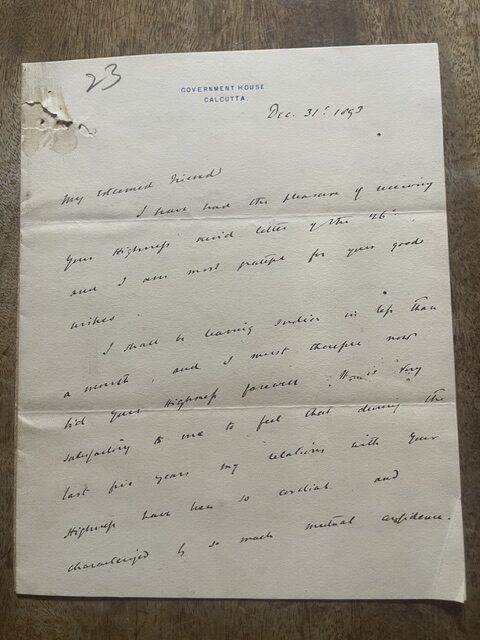 23
GOVERNMENT HOUSE
CALCUTTA.
Dec. 31st 1893
My esteemed Friend
I have had the pleasure of receiving
Your Highness' kind letter of the 26th.
and I am most grateful for your good
wishes.
I shall be leaving India in less than
a month, and I must therefore now
bid Your Highness farewell. It is very
satisfactory to me to feel that during the
last five years my relations with Your
Highness have been so cordial and
characterized by so much mutual confidence.